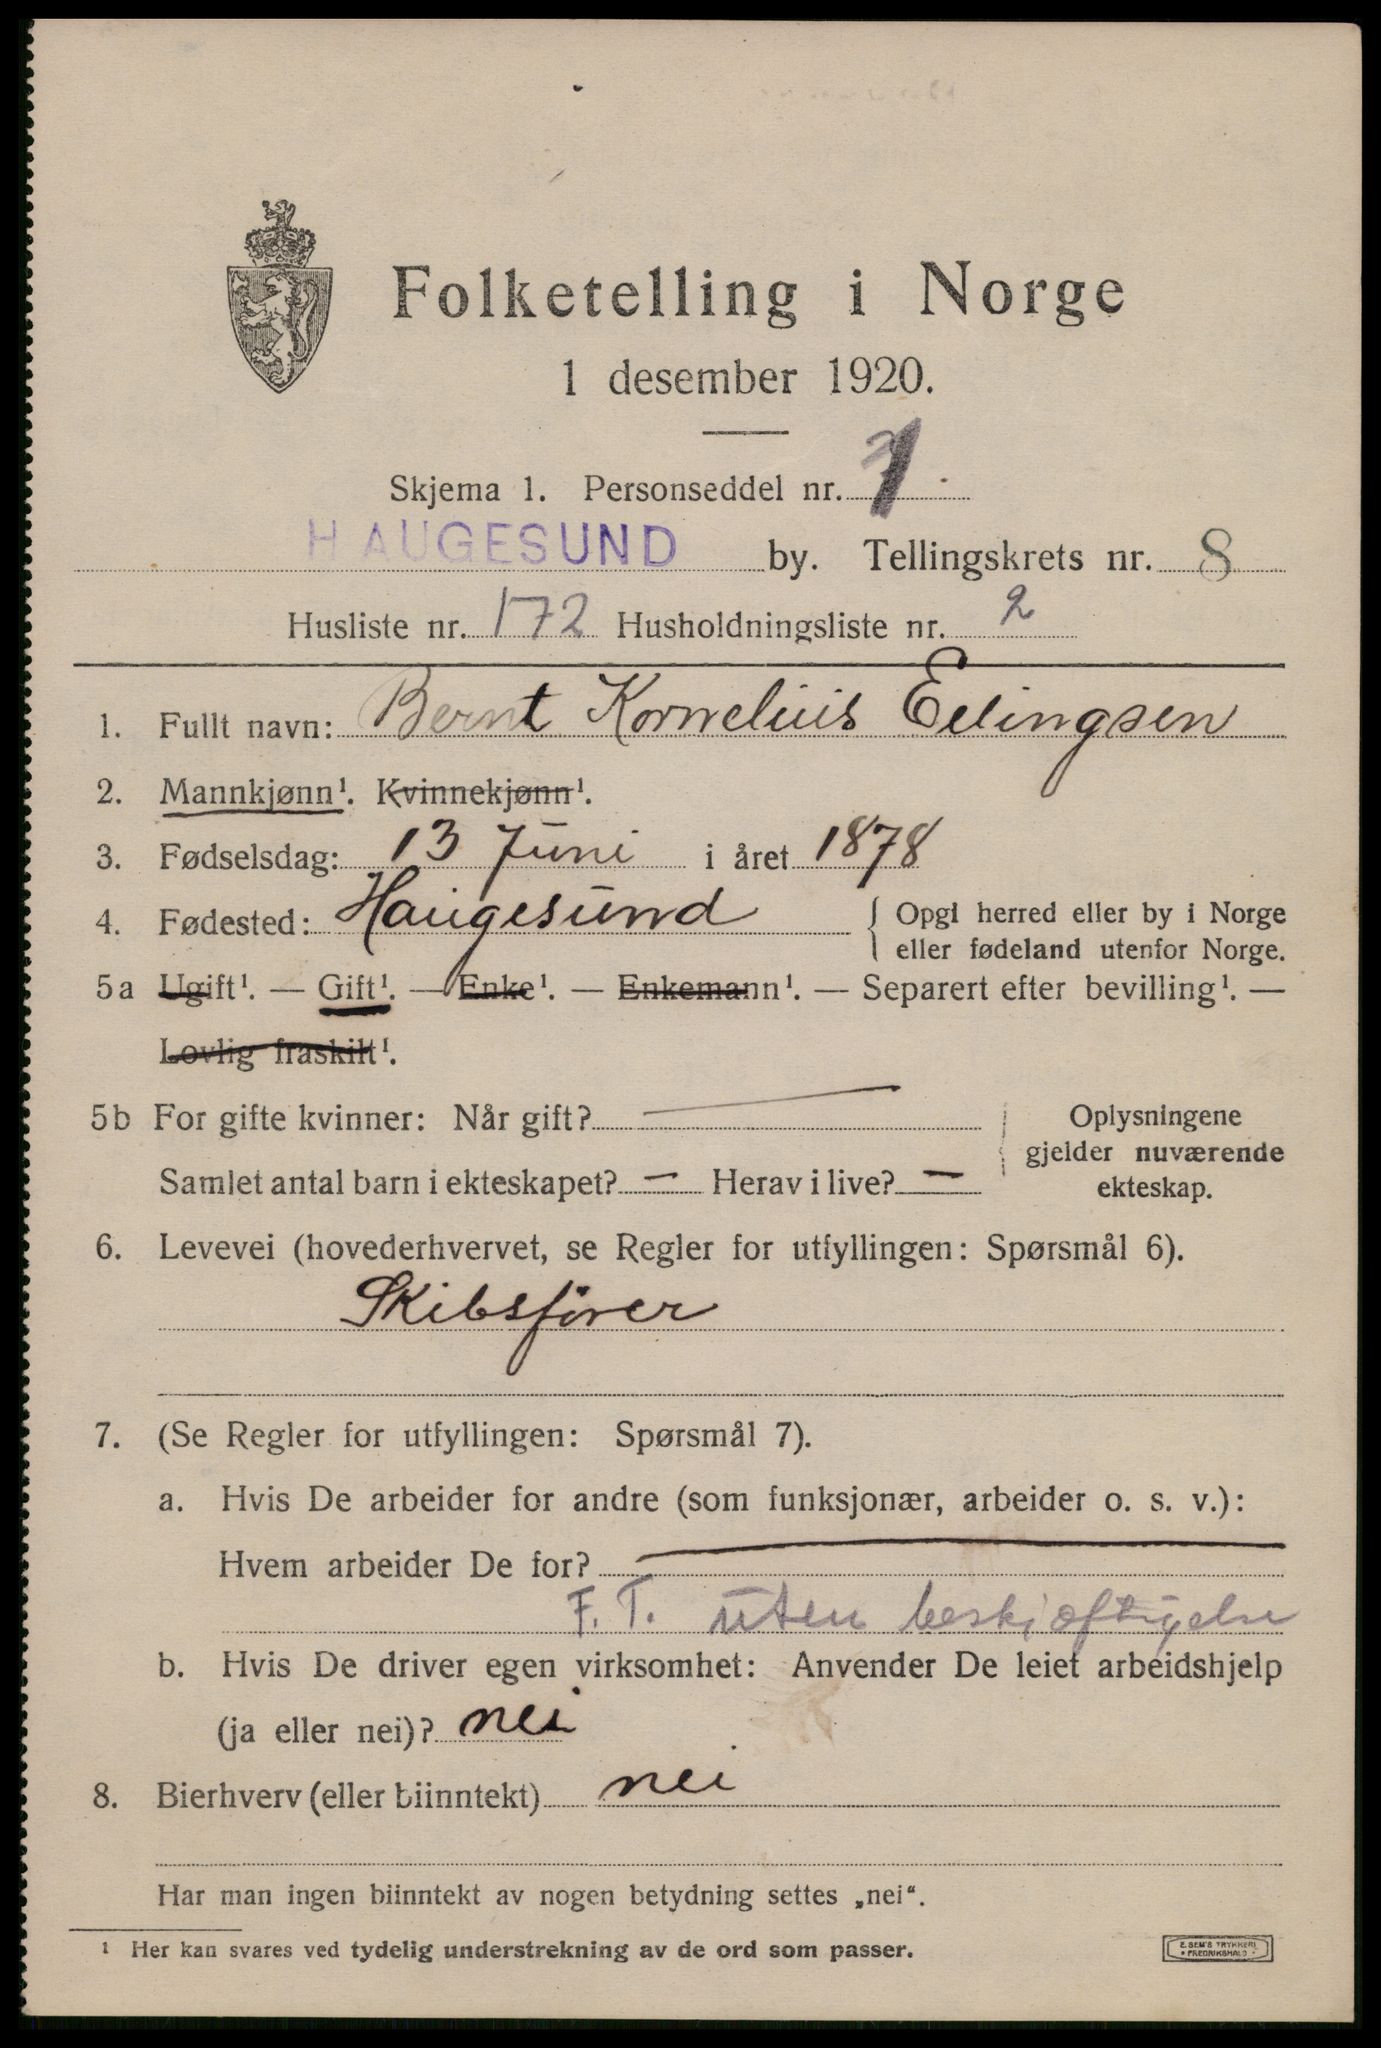 Folketelling i Norge
1 desember 1920.
Skjema 1. Personseddel nr.
HAUGESUND by. Tellingskrets nr. 8
Husliste nr. 172 Husholdningsliste nr. 2
1. Fullt navn: Bernt Kornelius Eelingsen
2. Mannkjønn¹. Kvinnekjønn¹.
3. Fødselsdag: 13 Juni i året 1878
4. Fødested: Haugesund { Opgi herred eller by i Norge
eller fødeland utenfor Norge.
5a Ugift¹. — Gift¹. — Enke¹. — Enkemann¹. — Separert efter bevilling¹. —
Lovlig fraskilt¹.
5b For gifte kvinner: Når gift? — { Oplysningene
gjelder nuværende
Samlet antal barn i ekteskapet? — Herav i live? —
ekteskap.
6. Levevei (hovederhvervet, se Regler for utfyllingen: Spørsmål 6).
Skibsfører
7. (Se Regler for utfyllingen: Spørsmål 7).
a. Hvis De arbeider for andre (som funksjonær, arbeider o. s. v.):
Hvem arbeider De for? —
F. T. uten beskjæftigelse
b. Hvis De driver egen virksomhet: Anvender De leiet arbeidshjelp
(ja eller nei)? nei
8. Bierhverv (eller biinntekt) nei
Har man ingen biinntekt av nogen betydning settes „nei“.
¹ Her kan svares ved tydelig understrekning av de ord som passer.
E. SEM'S TRYKKERI
• FREDRIKSHALD •